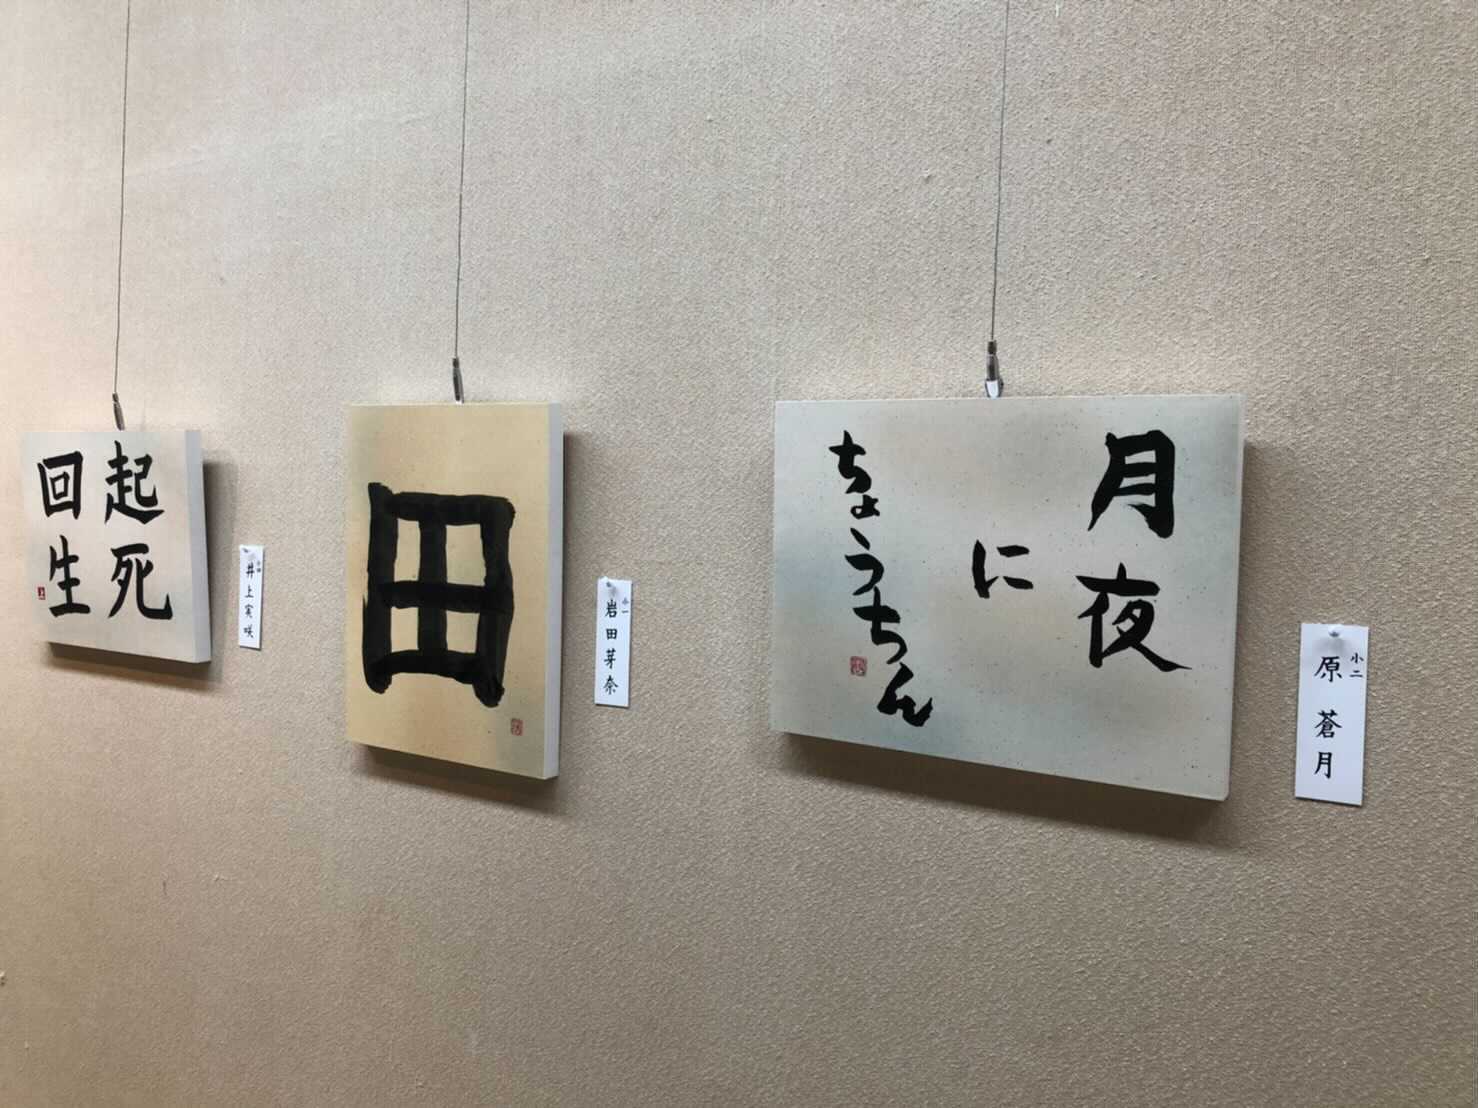 起死
回生
小四
井上実咲
田
小一
岩田芽奈
月夜
に
ちょうちん
小二
原 蒼月